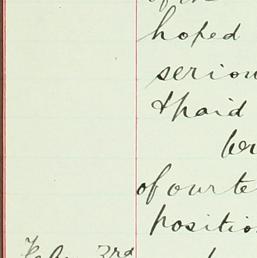 of the
hoped
seriou
& paid
be
of our te
positio
Feb. 3rd